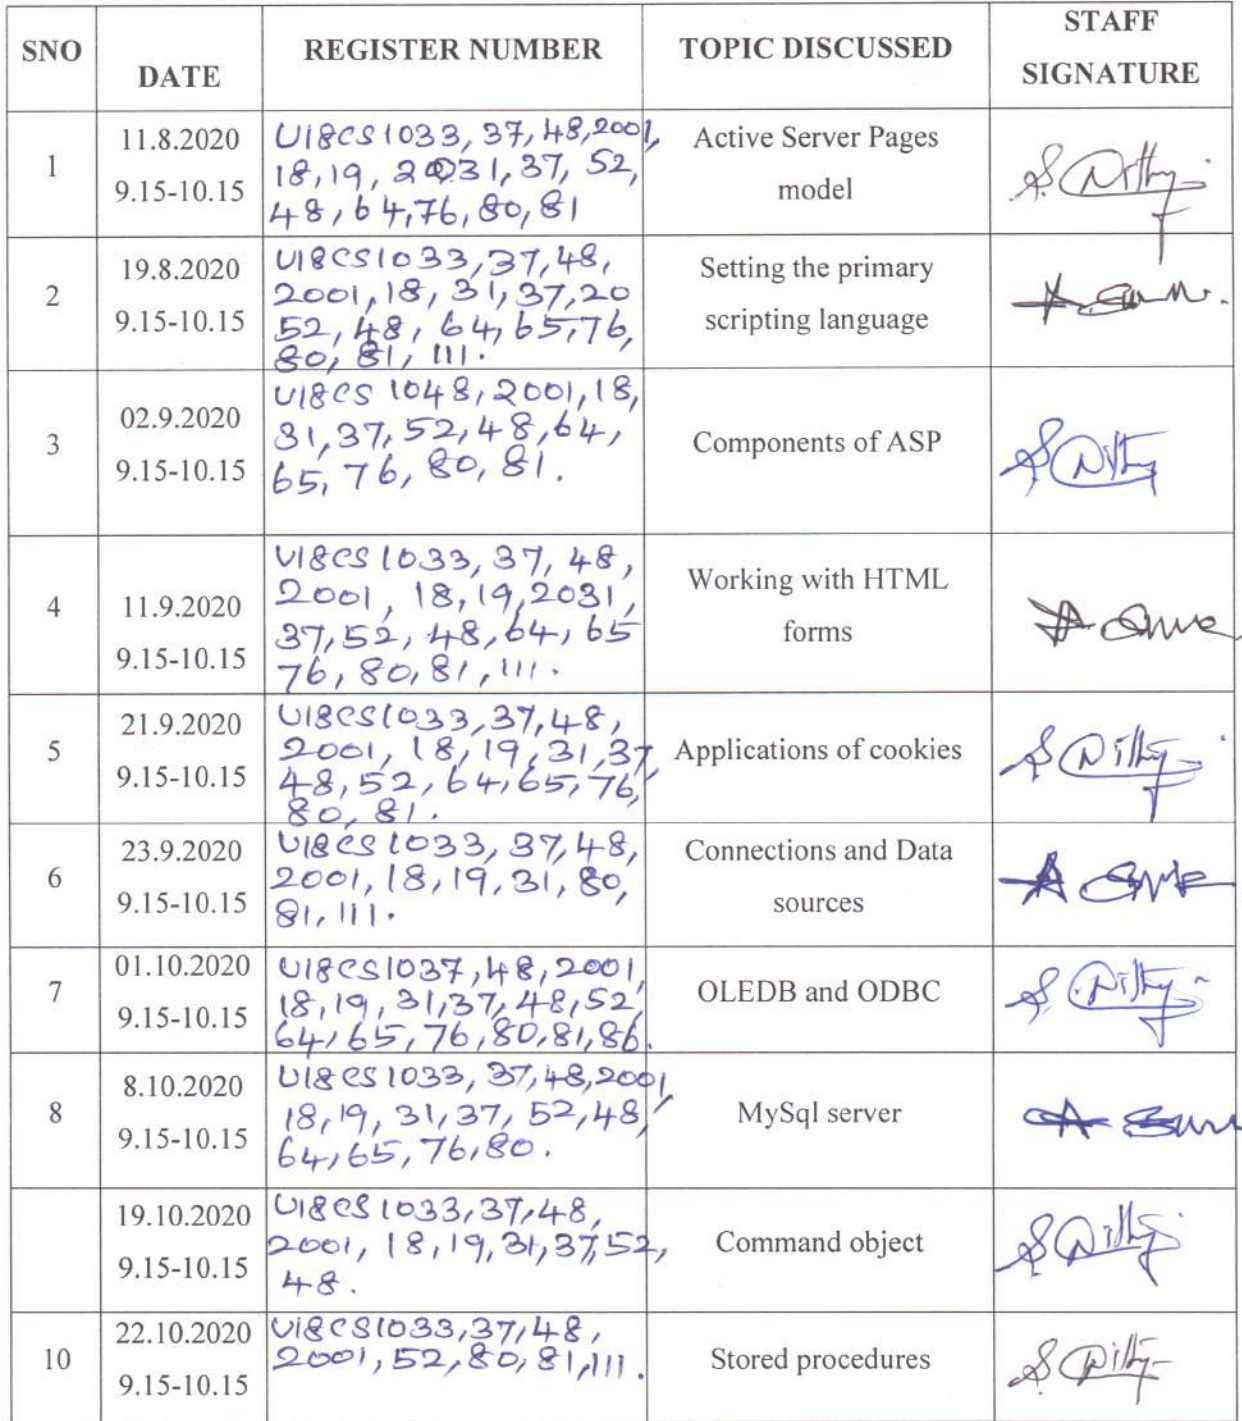 SNO
DATE
REGISTER NUMBER
TOPIC DISCUSSED
STAFF
SIGNATURE
1
11.8.2020
9.15-10.15
U18CS1033, 37, 48, 2001,
18, 19, 2031, 37, 52,
48, 64, 76, 80, 81
Active Server Pages
model
2
19.8.2020
9.15-10.15
U18CS1033, 37, 48,
2001, 18, 31, 37, 20
52, 48, 64, 65, 76,
80, 81, 111.
Setting the primary
scripting language
3
02.9.2020
9.15-10.15
U18CS 1048, 2001, 18,
31, 37, 52, 48, 64,
65, 76, 80, 81.
Components of ASP
4
11.9.2020
9.15-10.15
U18CS 1033, 37, 48,
2001, 18, 19, 2031,
37, 52, 48, 64, 65
76, 80, 81, 111.
Working with HTML
forms
5
21.9.2020
9.15-10.15
U18CS1033, 37, 48,
2001, 18, 19, 31, 37
48, 52, 64, 65, 76,
80, 81.
Applications of cookies
6
23.9.2020
9.15-10.15
U18CS 1033, 37, 48,
2001, 18, 19, 31, 80,
81, 111.
Connections and Data
sources
7
01.10.2020
9.15-10.15
U18CS1037, 48, 2001,
18, 19, 31, 37, 48, 52,
64, 65, 76, 80, 81, 86.
OLEDB and ODBC
8
8.10.2020
9.15-10.15
U18CS 1033, 37, 48, 2001,
18, 19, 31, 37, 52, 48,
64, 65, 76, 80.
MySql server
19.10.2020
9.15-10.15
U18CS 1033, 37, 48,
2001, 18, 19, 31, 37, 52,
48.
Command object
10
22.10.2020
9.15-10.15
U18CS1033, 37, 48,
2001, 52, 80, 81, 111.
Stored procedures